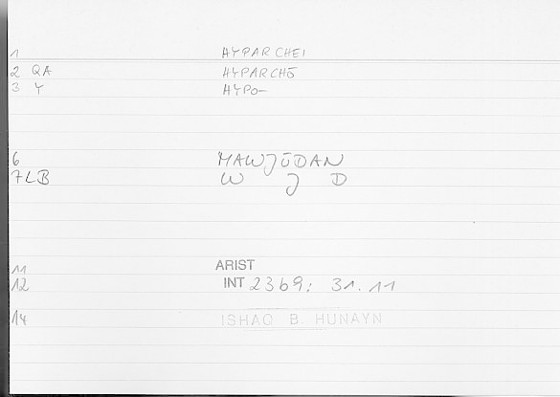 1 HYPARCHEI
2 QA HYPARCHŌ
3 Y HYPO-
6 MAWJŪDAN
7LB W J D
11 ARIST
12 INT 2369: 31.11
14 ISHAQ B. HUNAYN